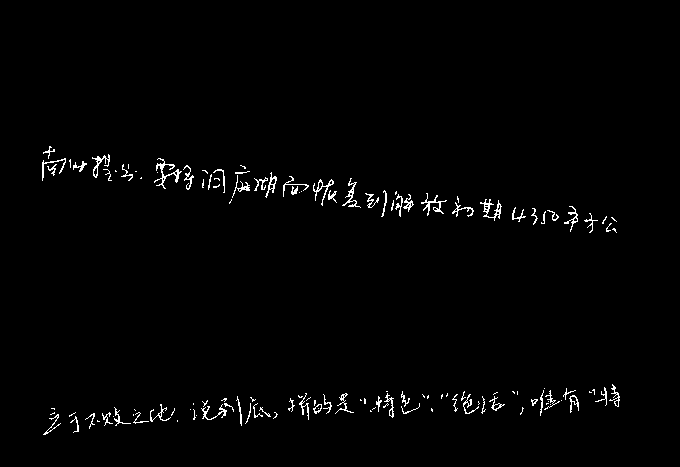 南州提出，要将洞庭湖面恢复到解放初期4350平方公
立于不败之地．说到底，拼的是“特色”、“绝活”，唯有“特